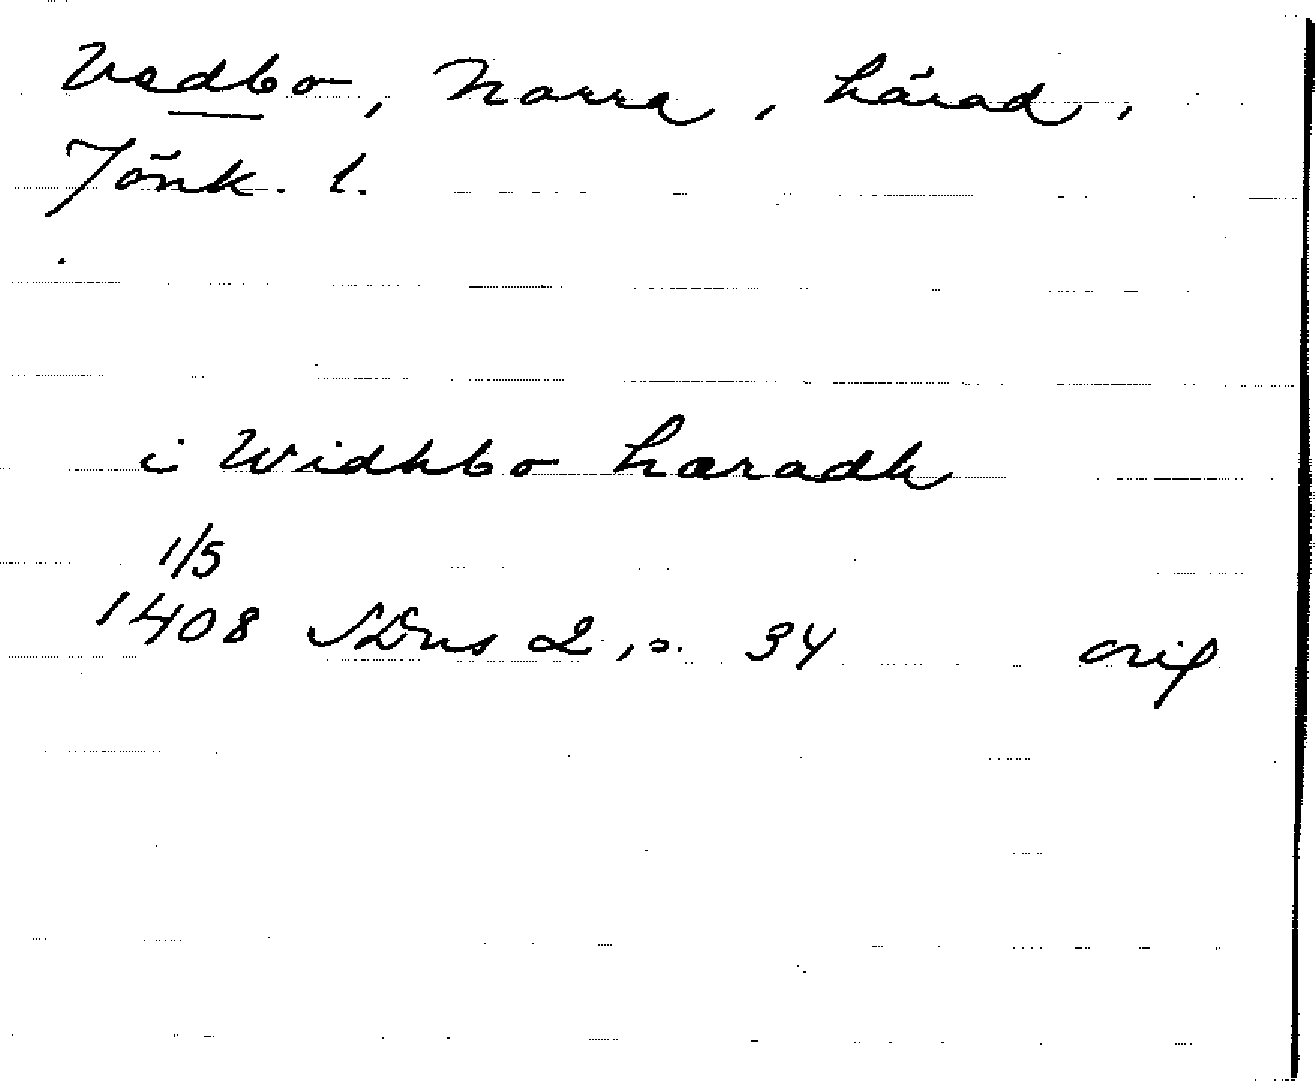 Vedbo, Norra, härad,
Jönk. l.
i Widhbo hæradh
1/5
1408 SDns 2, s. 34 orig